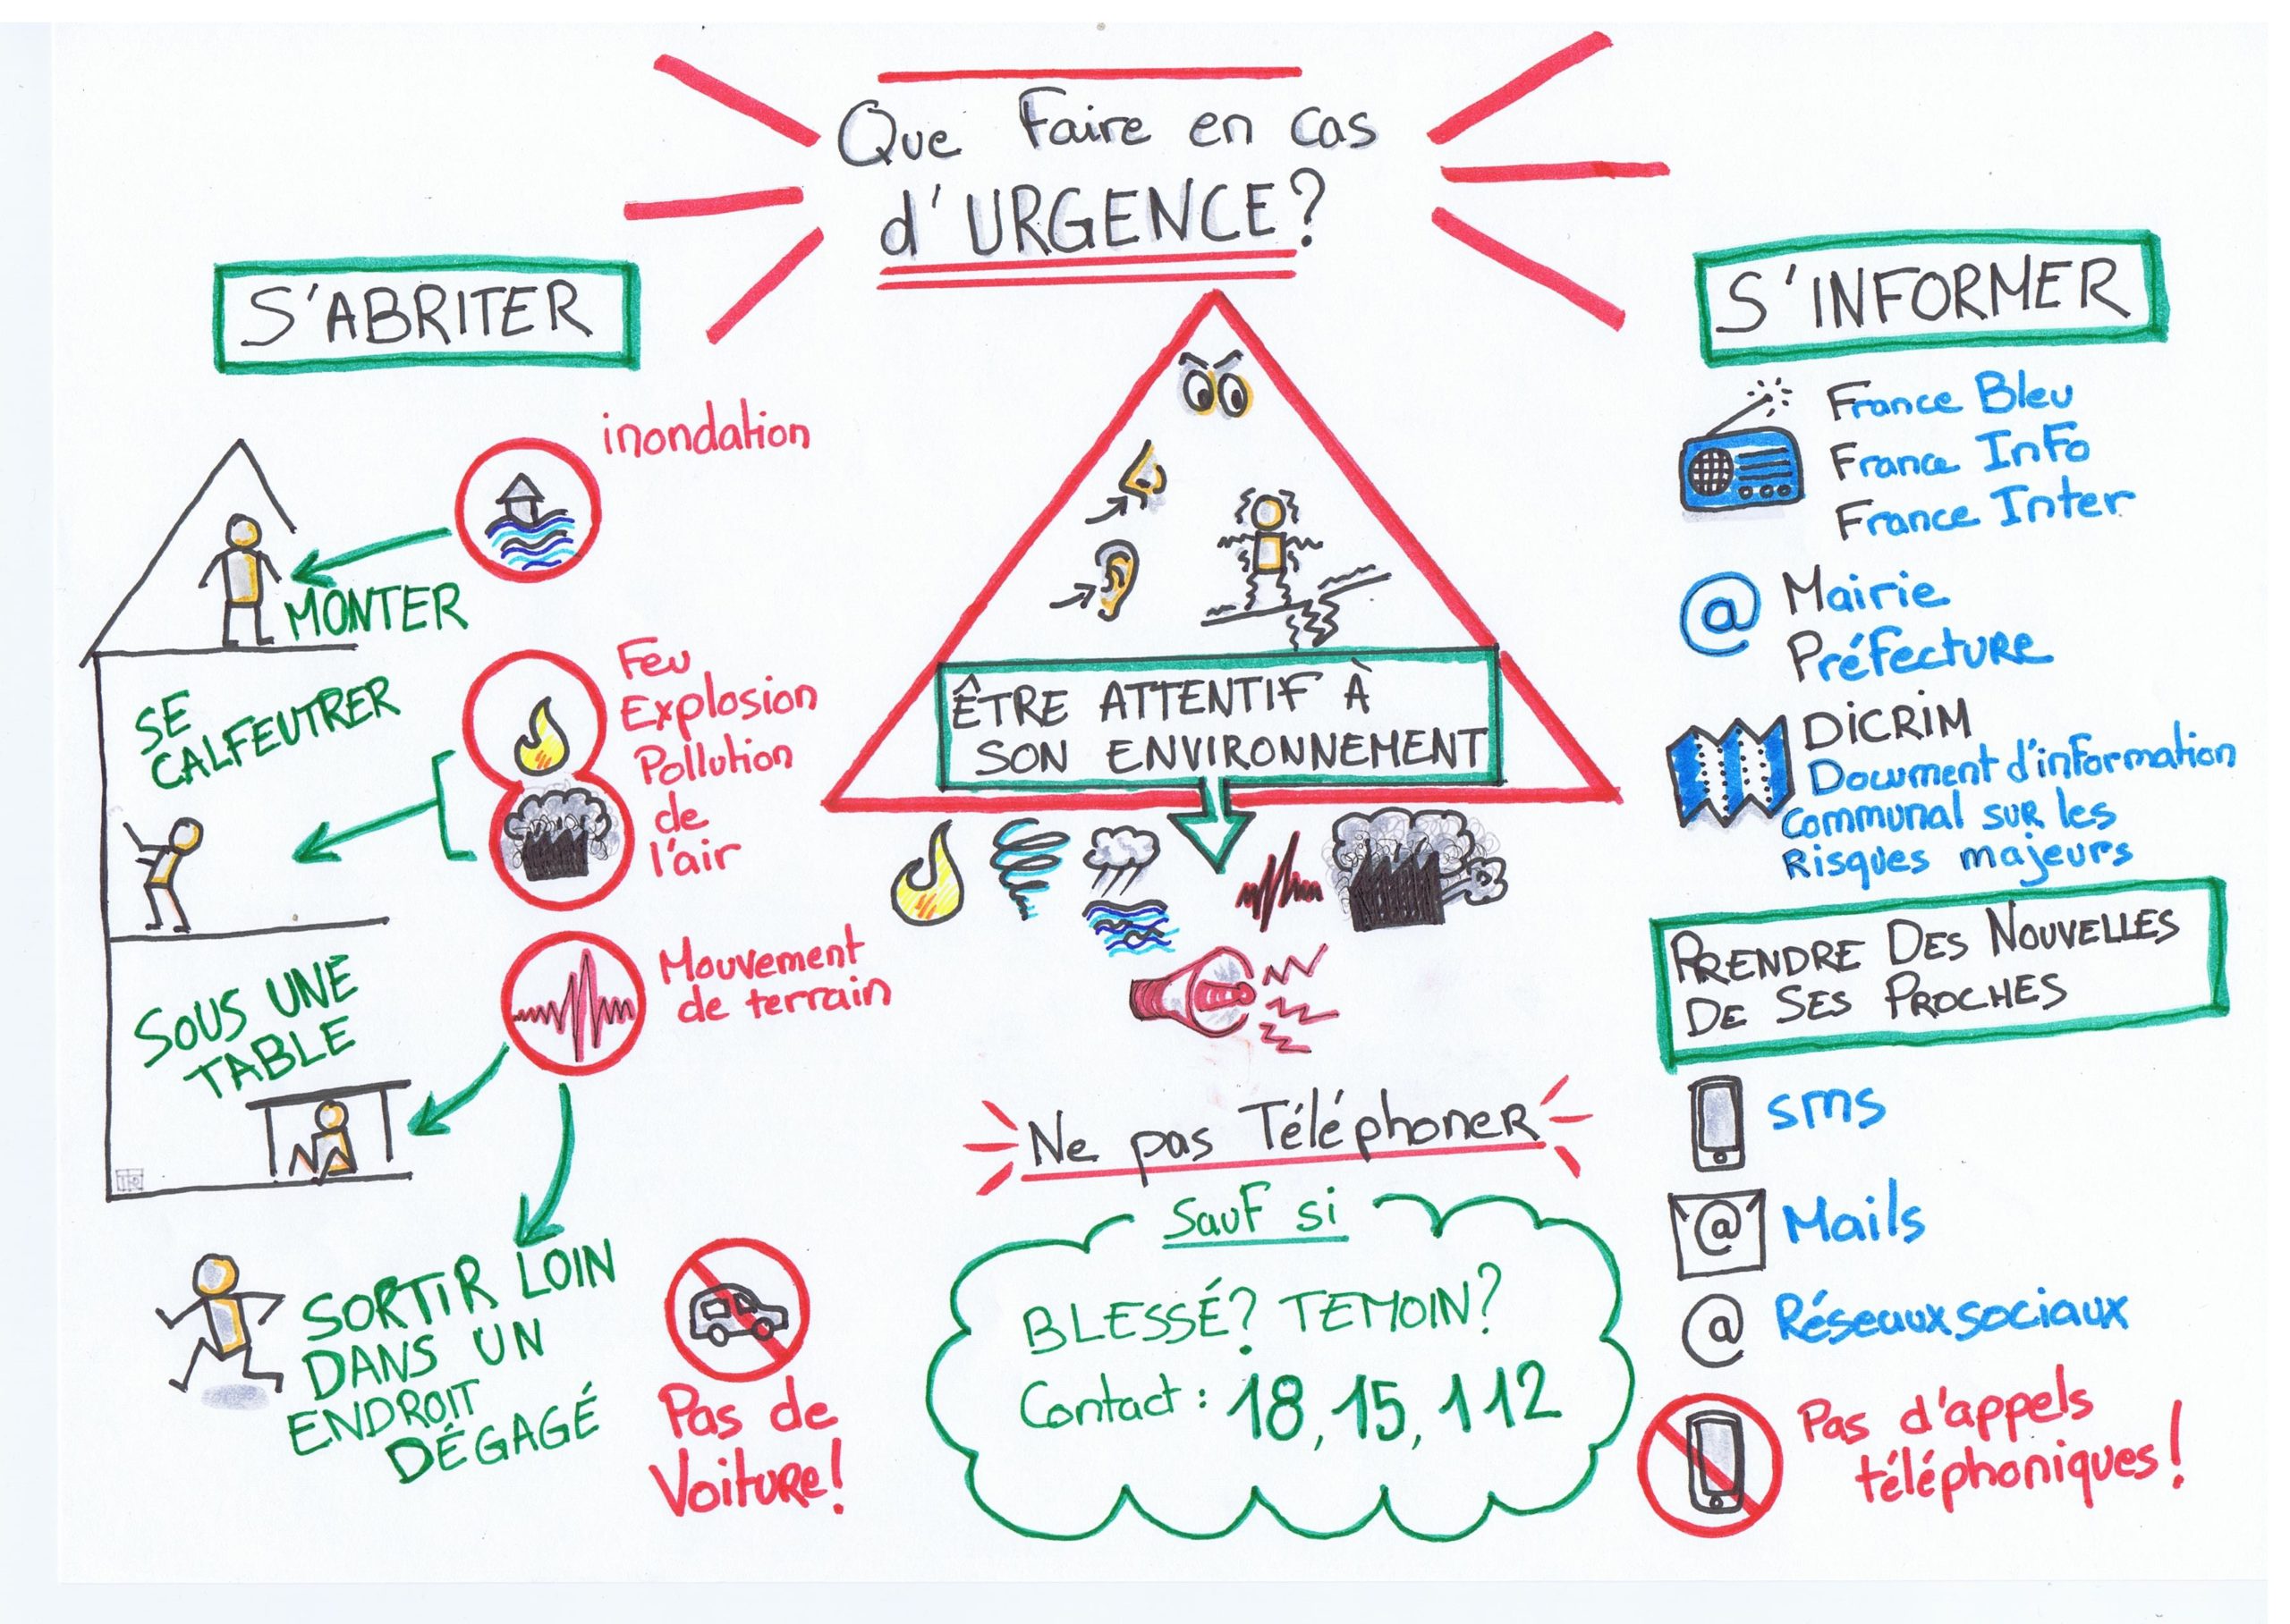 Que Faire en cas
d'URGENCE?
S'ABRITER
inondation
MONTER
SE
CALFEUTRER
Feu
Explosion
Pollution
de
l'air
SOUS UNE
TABLE
Mouvement
de terrain
SORTIR LOIN
DANS UN
ENDROIT
DÉGAGÉ
Pas de
Voiture!
ÊTRE ATTENTIF À
SON ENVIRONNEMENT
Ne pas Téléphoner
Sauf si
BLESSÉ? TEMOIN?
Contact : 18, 15, 112
S'INFORMER
France Bleu
France Info
France Inter
@ Mairie
Préfecture
DiCRiM
Document d'information
Communal sur les
Risques majeurs
PRENDRE DES NOUVELLES
DE SES PROCHES
sms
@ Mails
@ Réseaux sociaux
Pas d'appels
téléphoniques!